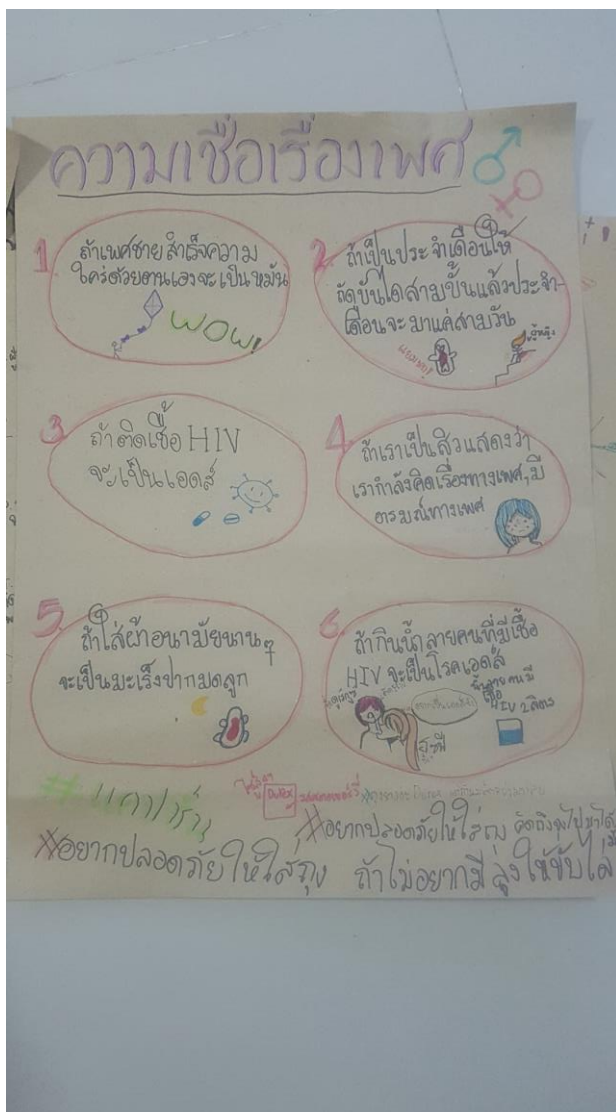 ความเชื่อเรื่องเพศ
1.
ถ้าเพศชายสำเร็จความ
ใคร่ด้วยตนเองจะเป็นหมัน
WOW!
2.
ถ้าเป็นประจำเดือนให้
ถัดบันไดสามขั้นแล้วประจำ-
เดือนจะมาแค่สามวัน
3.
ถ้าติดเชื้อ HIV
จะเป็นเอดส์
4.
ถ้าเราเป็นสิวแสดงว่า
เรากำลังคิดเรื่องทางเพศ,มี
อารมณ์ทางเพศ
5.
ถ้าใส่ผ้าอนามัยนานๆ
จะเป็นมะเร็งปากมดลูก
6.
ถ้ากินน้ำลายคนที่มีเชื้อ
HIV จะเป็นโรคเอดส์
น้ำลายคนมี
เชื้อ
HIV 2ลิตร
Durex
#อยากปลอดภัยให้ใส่ถุง
#อยากปลอดภัยให้ใส่ถุง ถ้าไม่อยากมีลุงให้ขับไล่